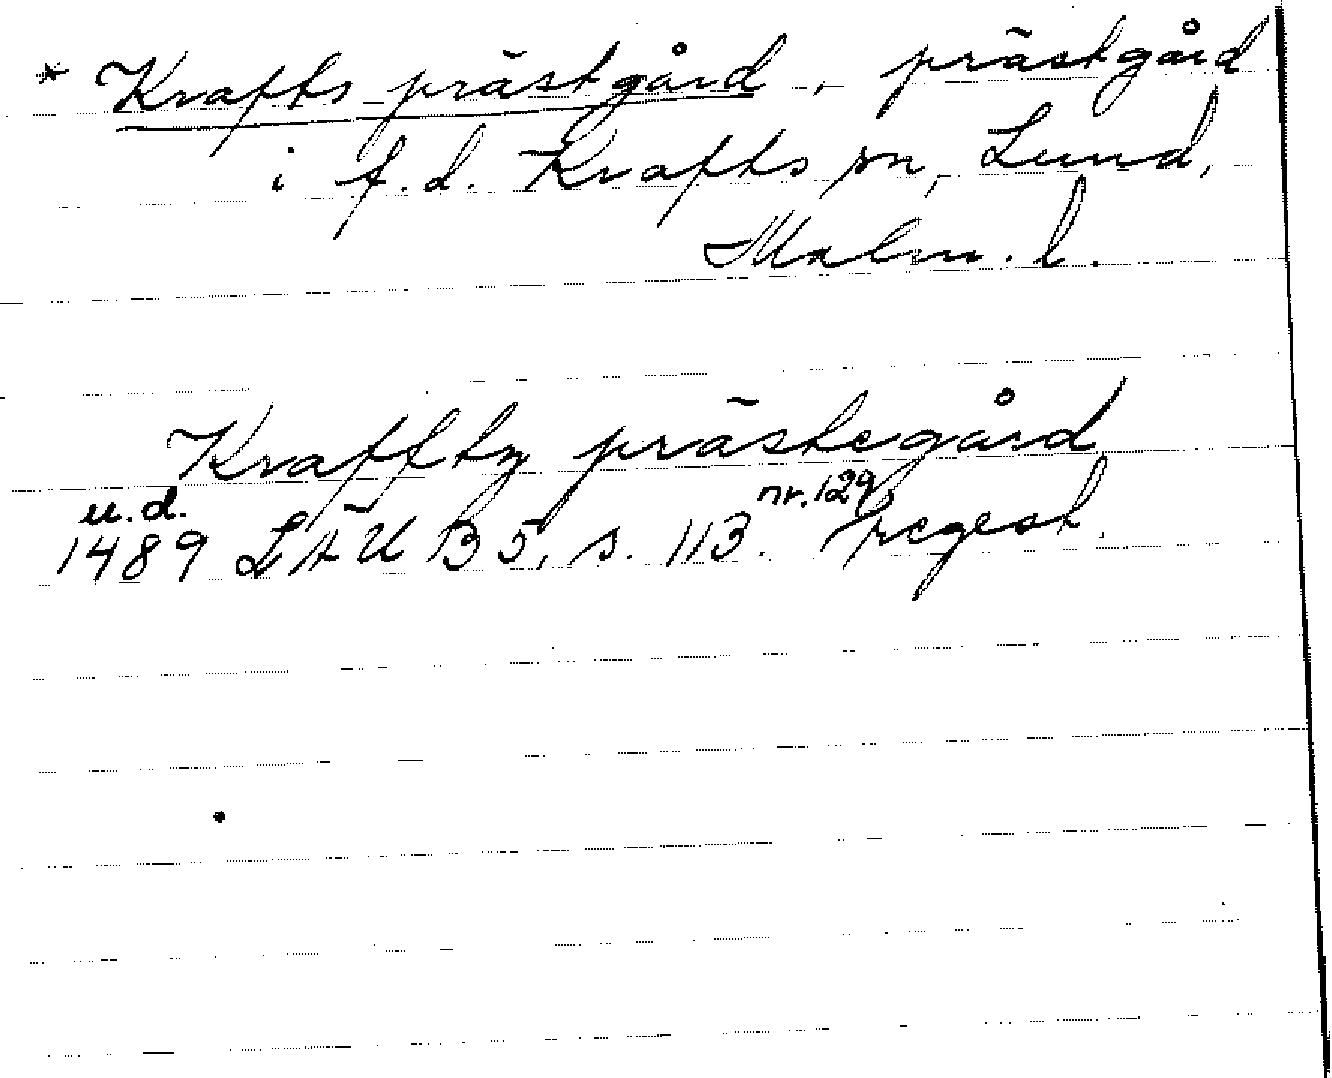 * Krafts prästgård, prästgård
i f.d. Krafts sn, Lund,
Malm. l.
Krafftz prästegård
u.d. nr. 129
1489 LÄU B5, s. 113. Regest.